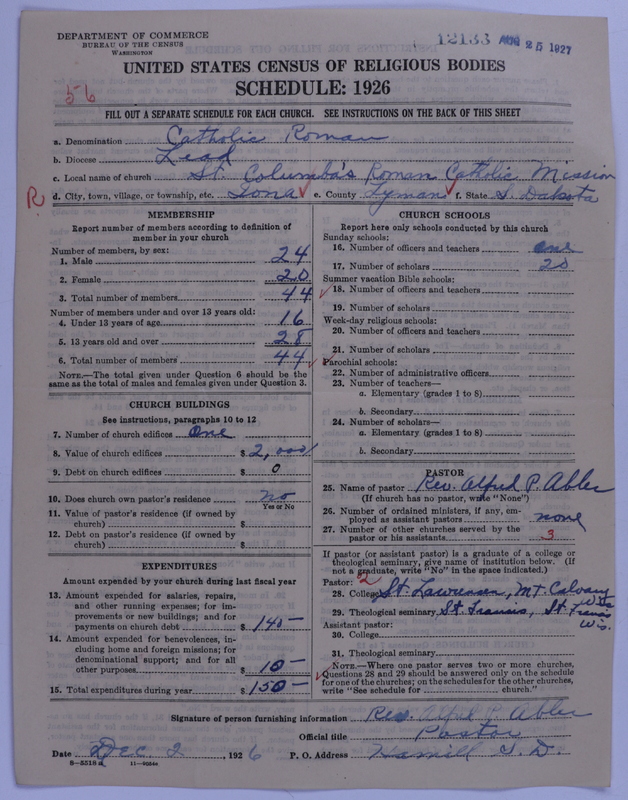 DEPARTMENT OF COMMERCE
BUREAU OF THE CENSUS
WASHINGTON
12133 AUG 25 1927
UNITED STATES CENSUS OF RELIGIOUS BODIES
SCHEDULE: 1926
56
FILL OUT A SEPARATE SCHEDULE FOR EACH CHURCH. SEE INSTRUCTIONS ON THE BACK OF THIS SHEET
a. Denomination Catholic Roman
b. Diocese Lead
c. Local name of church St. Columba's Roman Catholic Mission
R d. City, town, village, or township, etc. Iona e. County Lyman f. State S. Dakota
MEMBERSHIP
Report number of members according to definition of
member in your church
Number of members, by sex:
1. Male 24
2. Female 20
3. Total number of members 44
Number of members under and over 13 years old:
4. Under 13 years of age 16
5. 13 years old and over 28
6. Total number of members 44
NOTE.—The total given under Question 6 should be the
same as the total of males and females given under Question 3.
CHURCH BUILDINGS
See instructions, paragraphs 10 to 12
7. Number of church edifices One
8. Value of church edifices $ 2,000
9. Debt on church edifices $ 0
10. Does church own pastor's residence No
Yes or No
11. Value of pastor's residence (if owned by
church) $
12. Debt on pastor's residence (if owned by
church) $
EXPENDITURES
Amount expended by your church during last fiscal year
13. Amount expended for salaries, repairs,
and other running expenses; for im-
provements or new buildings; and for
payments on church debt $ 140—
14. Amount expended for benevolences, in-
cluding home and foreign missions; for
denominational support; and for all
other purposes $ 10—
15. Total expenditures during year $ 150—
CHURCH SCHOOLS
Report here only schools conducted by this church
Sunday schools:
16. Number of officers and teachers one
17. Number of scholars 20
Summer vacation Bible schools:
18. Number of officers and teachers
19. Number of scholars
Week-day religious schools:
20. Number of officers and teachers
21. Number of scholars
Parochial schools:
22. Number of administrative officers
23. Number of teachers—
a. Elementary (grades 1 to 8)
b. Secondary
24. Number of scholars—
a. Elementary (grades 1 to 8)
b. Secondary
PASTOR
25. Name of pastor Rev. Alfred P. Abler
(If church has no pastor, write "None")
26. Number of ordained ministers, if any, em-
ployed as assistant pastors none
27. Number of other churches served by the
pastor or his assistants 3
If pastor (or assistant pastor) is a graduate of a college or
theological seminary, give name of institution below. (If
not a graduate, write "No" in the space indicated.)
Pastor: 2
28. College St. Lawrence, Mt Calvary Wis
29. Theological seminary St. Francis, St. Francis Wis.
Assistant pastor:
30. College
31. Theological seminary
NOTE.—Where one pastor serves two or more churches,
Questions 28 and 29 should be answered only on the schedule
for one of the churches; on the schedules for the other churches,
write "See schedule for church."
Signature of person furnishing information Rev. Alfred P. Abler
Official title Pastor
Date Dec 2, 1926 P. O. Address Hamill S. D.
8-5518a 11-9054a